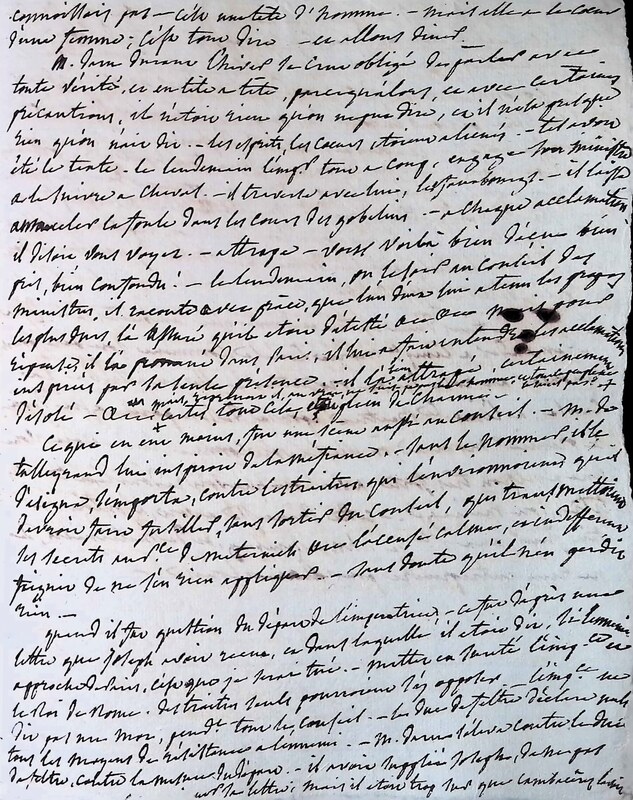 connoissois pas – c'est une tete d'homme. – mais elle a le coeur
d'une femme; c'est tout dire – ce allons diner
M. daru durant l'hiver se crut obligé de parler avec
toute vérité, en tete a tete, parcequ'alors, et avec certaines
précautions, il n'etoit rien qu'on ne put dire, et il n'est presque
rien qu'on n'ait dit. – les esprits, les coeurs etoient aliénés. – tel avoit
été le texte. le lendemain l'emp.r tout a coup, engage son ministre
a le suivre a cheval. – il traverse avec lui, les faubourgs. – il laisse
amonceler la foule dans les cours des gobelins. – a chaque acclamation
il disoit vous voyez. – attrapé – vous voilà bien
pris, bien confondu! – le lendemain, ou le soir au conseil des
ministres, il raconte avec grace, que l'un d'eux lui a tenu les propos
les plus durs, l'a assuré qu'il etoit détesté
il l'a promené dans Paris, il lui a fait entendre les acclamations
inspirées par sa seule présence. – il l'a attrapé, certainement
désolé – certes tout cela, est plein de charme –
Ce que en eut moins, fut une scène aussi au conseil. – M. de
talleyrand lui inspiroit de la méfiance. – sans le nommer, il le
désigna, s'emporta, contre les traitres qui l'environnoient qu'il
devroit faire fusiller, sans sortir du conseil, qui transmettoient
ses secrets au p.ce de Metternich l'accusé calme, et indifférent
feignit de ne s'en rien appliquer. – sans doute qu'il n'en perdit
rien –
quand il fut question du départ de l'impératrice – ce fut d'après une
lettre que Joseph avoit recue, et dans laquelle il etoit dit, si l'ennemi
approche de Paris, c'est que je serai tué. – mettez en sureté l'imp.ce et
le Roi de Rome. des traitres seuls pourroient s'y opposer – l'imp.ce ne
dit pas un mot, pend.t tout le conseil. – le duc de feltre déclara nuls
tous les moyens de résistance a l'ennemi. – M. daru s'éleva contre le duc
de feltre, contre la mesure du départ. – il avoit supplié Joseph, de ne pas
sa lettre, mais il etoit trop sur que cambacérès